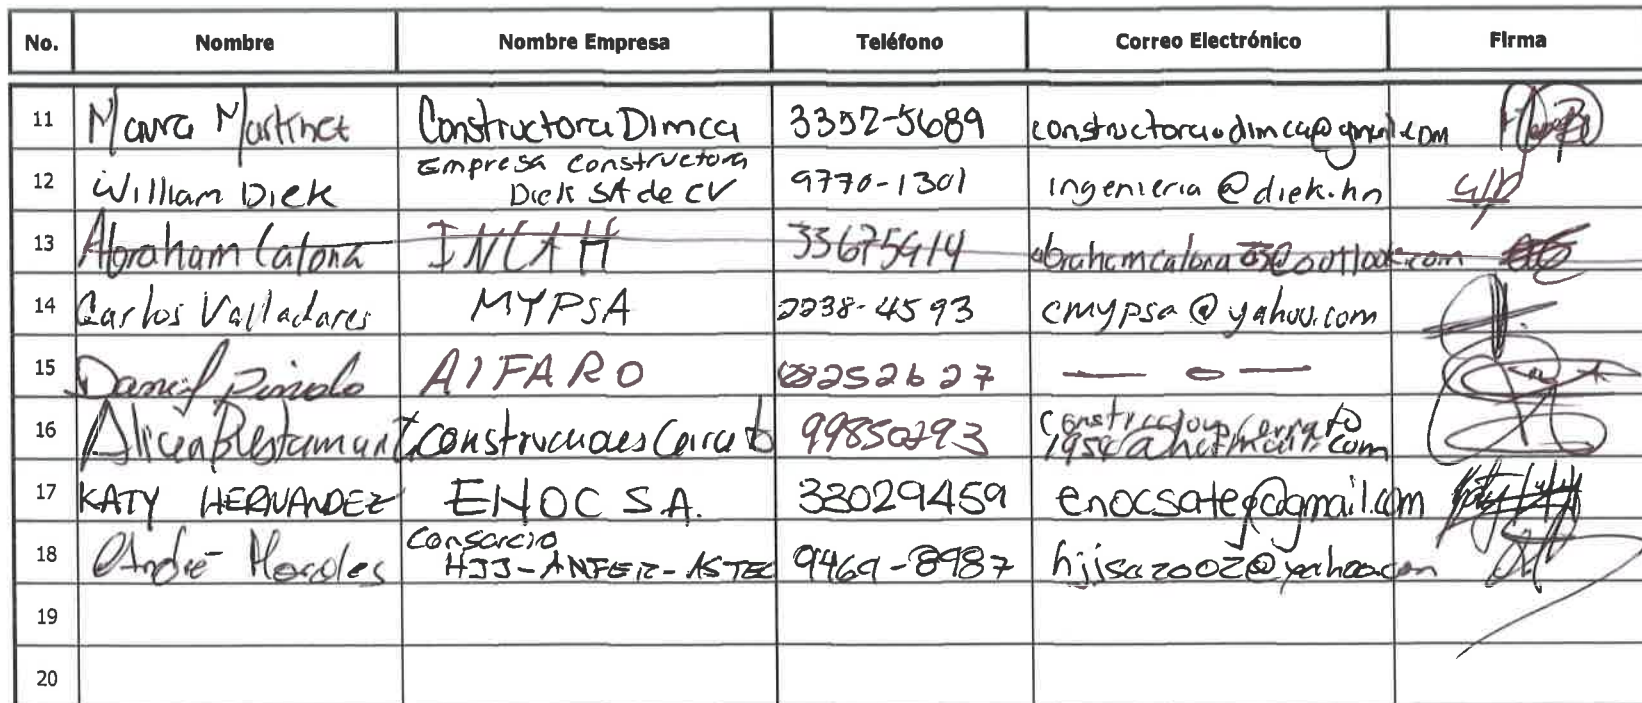 No. Nombre Nombre Empresa Teléfono Correo Electrónico Firma
11 Maura Martinez Constructora Dimca 3352-5689 constructora.dimca@gmail.com
12 William Diek Empresa Constructora Diek SA de CV 9770-1301 ingenieria@diek.hn
13 Abraham Calona INCAH 33675414 abrahamcalona @outlook.com
14 Carlos Valladares MYPSA 2238-4593 cmypsa@yahoo.com
15 Daniel AlFARO
16 Alicia Construcciones Cerrato 99850293 1954@hotmail.com
17 KATY HERNANDEZ ENOC S.A. 33029459 enocsateg@gmail.com
18 André Morales Consorcio HJJ-ANFER-ASTEC 9469-8987 hjjsa2002@yahoo.com
19
20